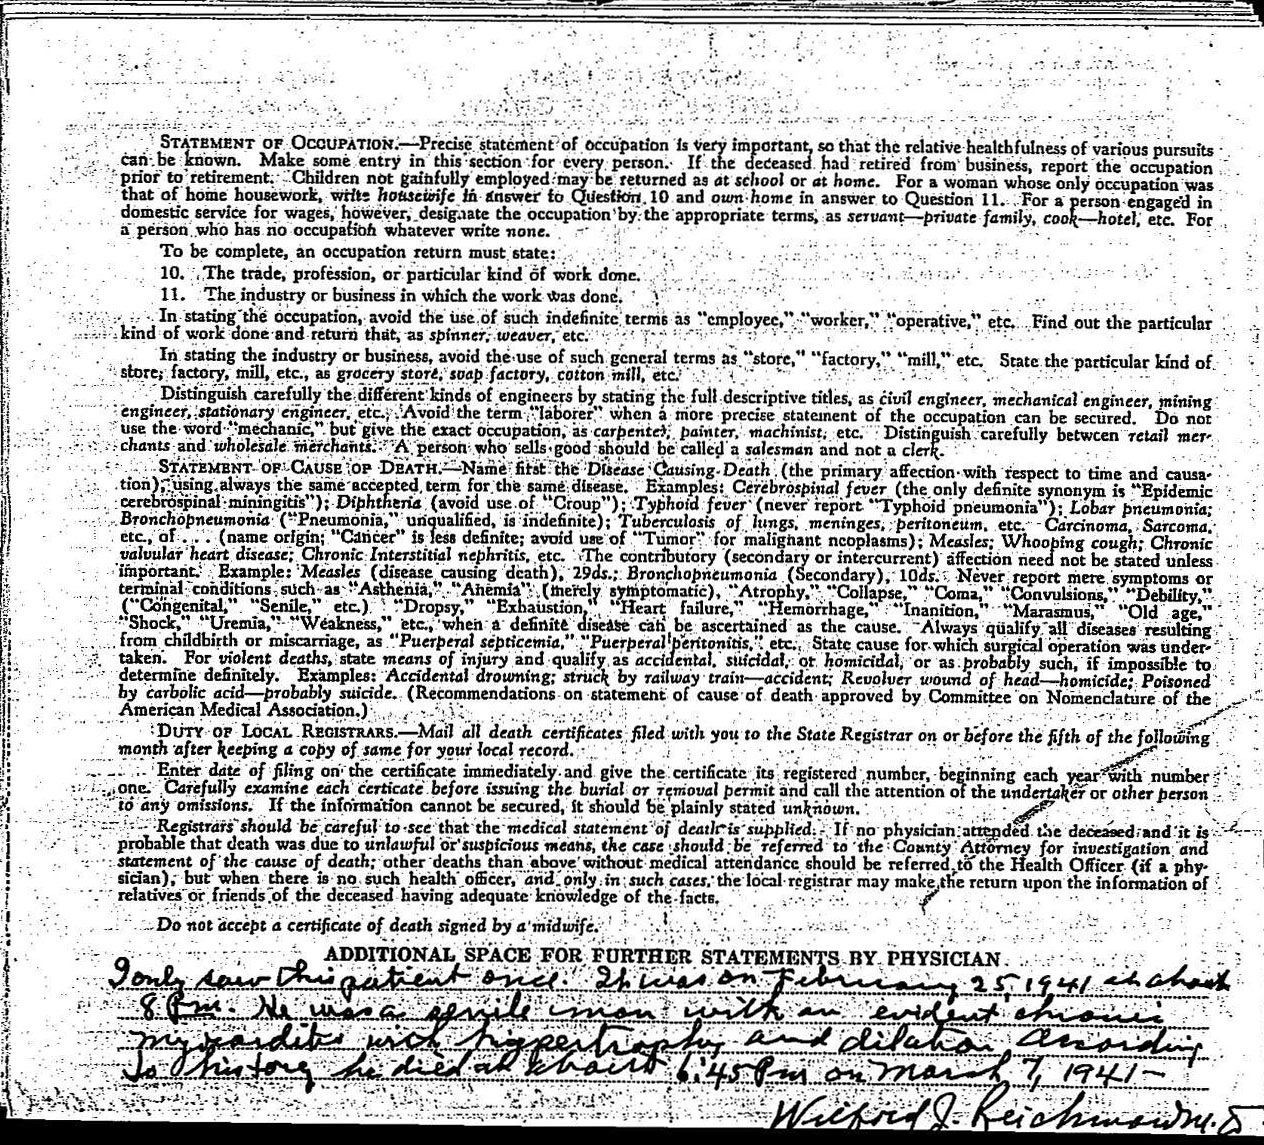 STATEMENT OF OCCUPATION.—Precise statement of occupation is very important, so that the relative healthfulness of various pursuits
can be known. Make some entry in this section for every person. If the deceased had retired from business, report the occupation
prior to retirement. Children not gainfully employed may be returned as at school or at home. For a woman whose only occupation was
that of home housework, write housewife in answer to Question 10 and own home in answer to Question 11. For a person engaged in
domestic service for wages, however, designate the occupation by the appropriate terms, as servant—private family, cook—hotel, etc. For
a person who has no occupation whatever write none.
To be complete, an occupation return must state:
10. The trade, profession, or particular kind of work done.
11. The industry or business in which the work was done.
In stating the occupation, avoid the use of such indefinite terms as "employee," "worker," "operative," etc. Find out the particular
kind of work done and return that, as spinner, weaver, etc.
In stating the industry or business, avoid the use of such general terms as "store," "factory," "mill," etc. State the particular kind of
store, factory, mill, etc., as grocery store, soap factory, cotton mill, etc.
Distinguish carefully the different kinds of engineers by stating the full descriptive titles, as civil engineer, mechanical engineer, mining
engineer, stationary engineer, etc. Avoid the term "laborer" when a more precise statement of the occupation can be secured. Do not
use the word "mechanic," but give the exact occupation, as carpenter, painter, machinist, etc. Distinguish carefully between retail mer-
chants and wholesale merchants. A person who sells good should be called a salesman and not a clerk.
STATEMENT OF CAUSE OF DEATH.—Name first the Disease Causing Death (the primary affection with respect to time and causa-
tion), using always the same accepted term for the same disease. Examples: Cerebrospinal fever (the only definite synonym is "Epidemic
cerebrospinal miningitis"); Diphtheria (avoid use of "Croup"); Typhoid fever (never report "Typhoid pneumonia"); Lobar pneumonia;
Bronchopneumonia ("Pneumonia," unqualified, is indefinite); Tuberculosis of lungs, meninges, peritoneum, etc. Carcinoma, Sarcoma,
etc., of . . . (name origin; "Cancer" is less definite; avoid use of "Tumor" for malignant neoplasms); Measles; Whooping cough; Chronic
valvular heart disease; Chronic Interstitial nephritis, etc. The contributory (secondary or intercurrent) affection need not be stated unless
important. Example: Measles (disease causing death), 29ds.; Bronchopneumonia (Secondary), 10ds. Never report mere symptoms or
terminal conditions such as "Asthenia," "Anemia" (merely symptomatic), "Atrophy," "Collapse," "Coma," "Convulsions," "Debility,"
("Congenital," "Senile," etc.) "Dropsy," "Exhaustion," "Heart failure," "Hemorrhage," "Inanition," "Marasmus," "Old age,"
"Shock," "Uremia," "Weakness," etc., when a definite disease can be ascertained as the cause. Always qualify all diseases resulting
from childbirth or miscarriage, as "Puerperal septicemia," "Puerperal peritonitis," etc. State cause for which surgical operation was under-
taken. For violent deaths, state means of injury and qualify as accidental, suicidal, or homicidal, or as probably such, if impossible to
determine definitely. Examples: Accidental drowning; struck by railway train—accident; Revolver wound of head—homicide; Poisoned
by carbolic acid—probably suicide. (Recommendations on statement of cause of death approved by Committee on Nomenclature of the
American Medical Association.)
DUTY OF LOCAL REGISTRARS.—Mail all death certificates filed with you to the State Registrar on or before the fifth of the following
month after keeping a copy of same for your local record.
Enter date of filing on the certificate immediately and give the certificate its registered number, beginning each year with number
one. Carefully examine each certicate before issuing the burial or removal permit and call the attention of the undertaker or other person
to any omissions. If the information cannot be secured, it should be plainly stated unknown.
Registrars should be careful to see that the medical statement of death is supplied. If no physician attended the deceased and it is
probable that death was due to unlawful or suspicious means, the case should be referred to the County Attorney for investigation and
statement of the cause of death; other deaths than above without medical attendance should be referred to the Health Officer (if a phy-
sician), but when there is no such health officer, and only in such cases, the local registrar may make the return upon the information of
relatives or friends of the deceased having adequate knowledge of the facts.
Do not accept a certificate of death signed by a midwife.
ADDITIONAL SPACE FOR FURTHER STATEMENTS BY PHYSICIAN
I only saw this patient once. It was on February 25, 1941 at about
8 Pm. He was a senile man with an evident chronic
myocarditis with hypertrophy and dilation According
to history he died at about 6:45 Pm on March 7, 1941—
Wilford J. Reichman M.D